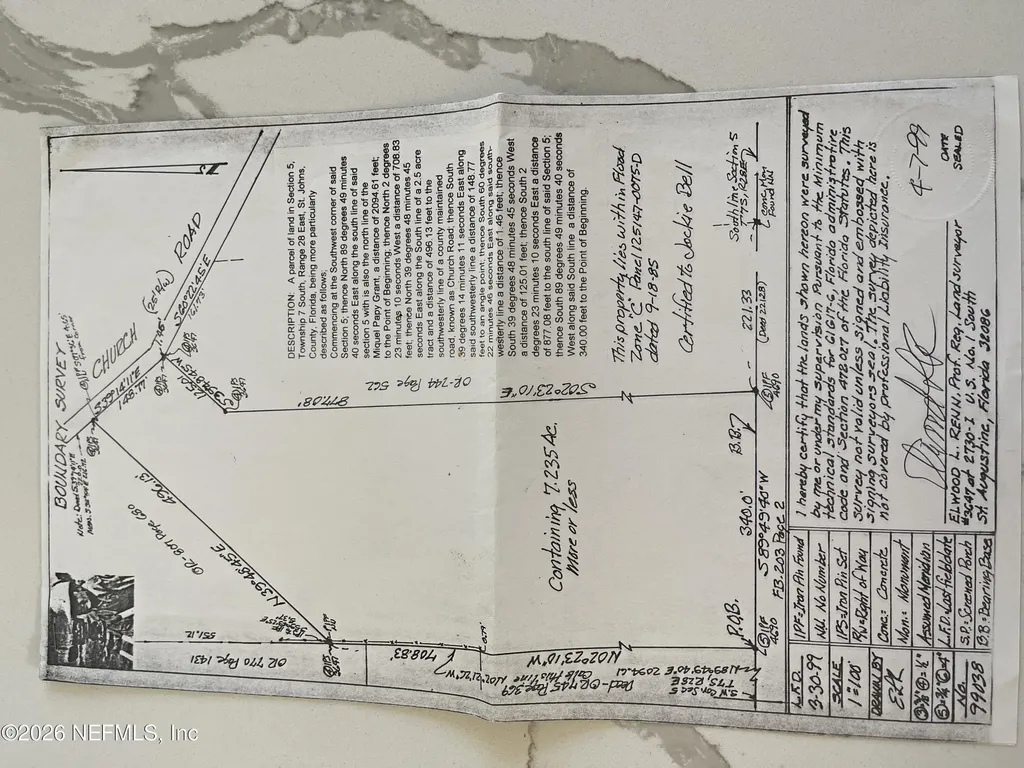 BOUNDARY SURVEY
CHURCH ROAD
S39°14'11"E
148.77'
S60°22'45"E
OR-744 Page 562
877.08'
S02°23'10"E
OR-807 Page 680
496.13'
N39°48'45"E
551.12
OR 770 Page 1431
708.83'
N02°23'10"W
Containing 7.235 Ac.
More or less
P.O.B.
340.0'
B.B.?
S89°49'40"W
F.B. 203 Page 2
2211.33
South line Section 5
T7S, R28E
DESCRIPTION: A parcel of land in Section 5,
Township 7 South, Range 28 East, St. Johns,
County, Florida, being more particularly
described as follows:
Commencing at the Southwest corner of said
Section 5; thence North 89 degrees 49 minutes
40 seconds East along the south line of said
section 5 with is also the north line of the
Miquel Papy Grant, a distance of 2094.61 feet;
to the Point of Beginning; thence North 2 degrees
23 minutes 10 seconds West a distance of 708.83
feet; thence North 39 degrees 48 minutes 45
seconds East along the South line of a 2.5 acre
tract and a distance of 496.13 feet to the
southwesterly line of a county maintained
road, known as Church Road; thence South
39 degrees 14 minutes 11 seconds East along
said southwesterly line a distance of 148.77
feet to an angle point; thence South 60 degrees
22 minutes 45 seconds East along said south-
westerly line a distance of 1.46 feet, thence
South 39 degrees 48 minutes 45 seconds West
a distance of 125.01 feet; thence South 2
degrees 23 minutes 10 seconds East a distance
of 877.08 feet to the south line of said Section 5;
thence South 89 degrees 49 minutes 40 seconds
West along said South line a distance of
340.00 feet to the Point of Beginning.
This property lies within Flood
Zone "C" Panel 125147-0075-D
dated 9-18-85
Certified to Jackie Bell
L.F.D.
3-30-99
SCALE
1"=100'
DRAWN BY
ELR
No.
99138
IPF=Iron Pin Found
N.N.= No Number
IPS=Iron Pin Set
R/W=Right of Way
Conc.= Concrete
Mon.= Monument
Assumed Meridian
L.F.D.=Last Field date
S.P.=Screened Porch
B.B.=Bearing Base
I hereby certify that the lands shown hereon were surveyed
by me or under my supervision Pursuant to the Minimum
technical standards for 61G17-6, Florida administrative
code and Section 472.027 of the Florida Statutes. This
survey not valid unless signed and embossed with
signing surveyors seal. The survey depicted here is
not covered by Professional Liability Insurance.
4-7-99
ELWOOD L. RENN. Prof. Reg. Land surveyor
#3647 at 2730-I U.S. No. 1 South
St. Augustine, Florida 32086
DATE
SEALED
©2026 NEFMLS, Inc